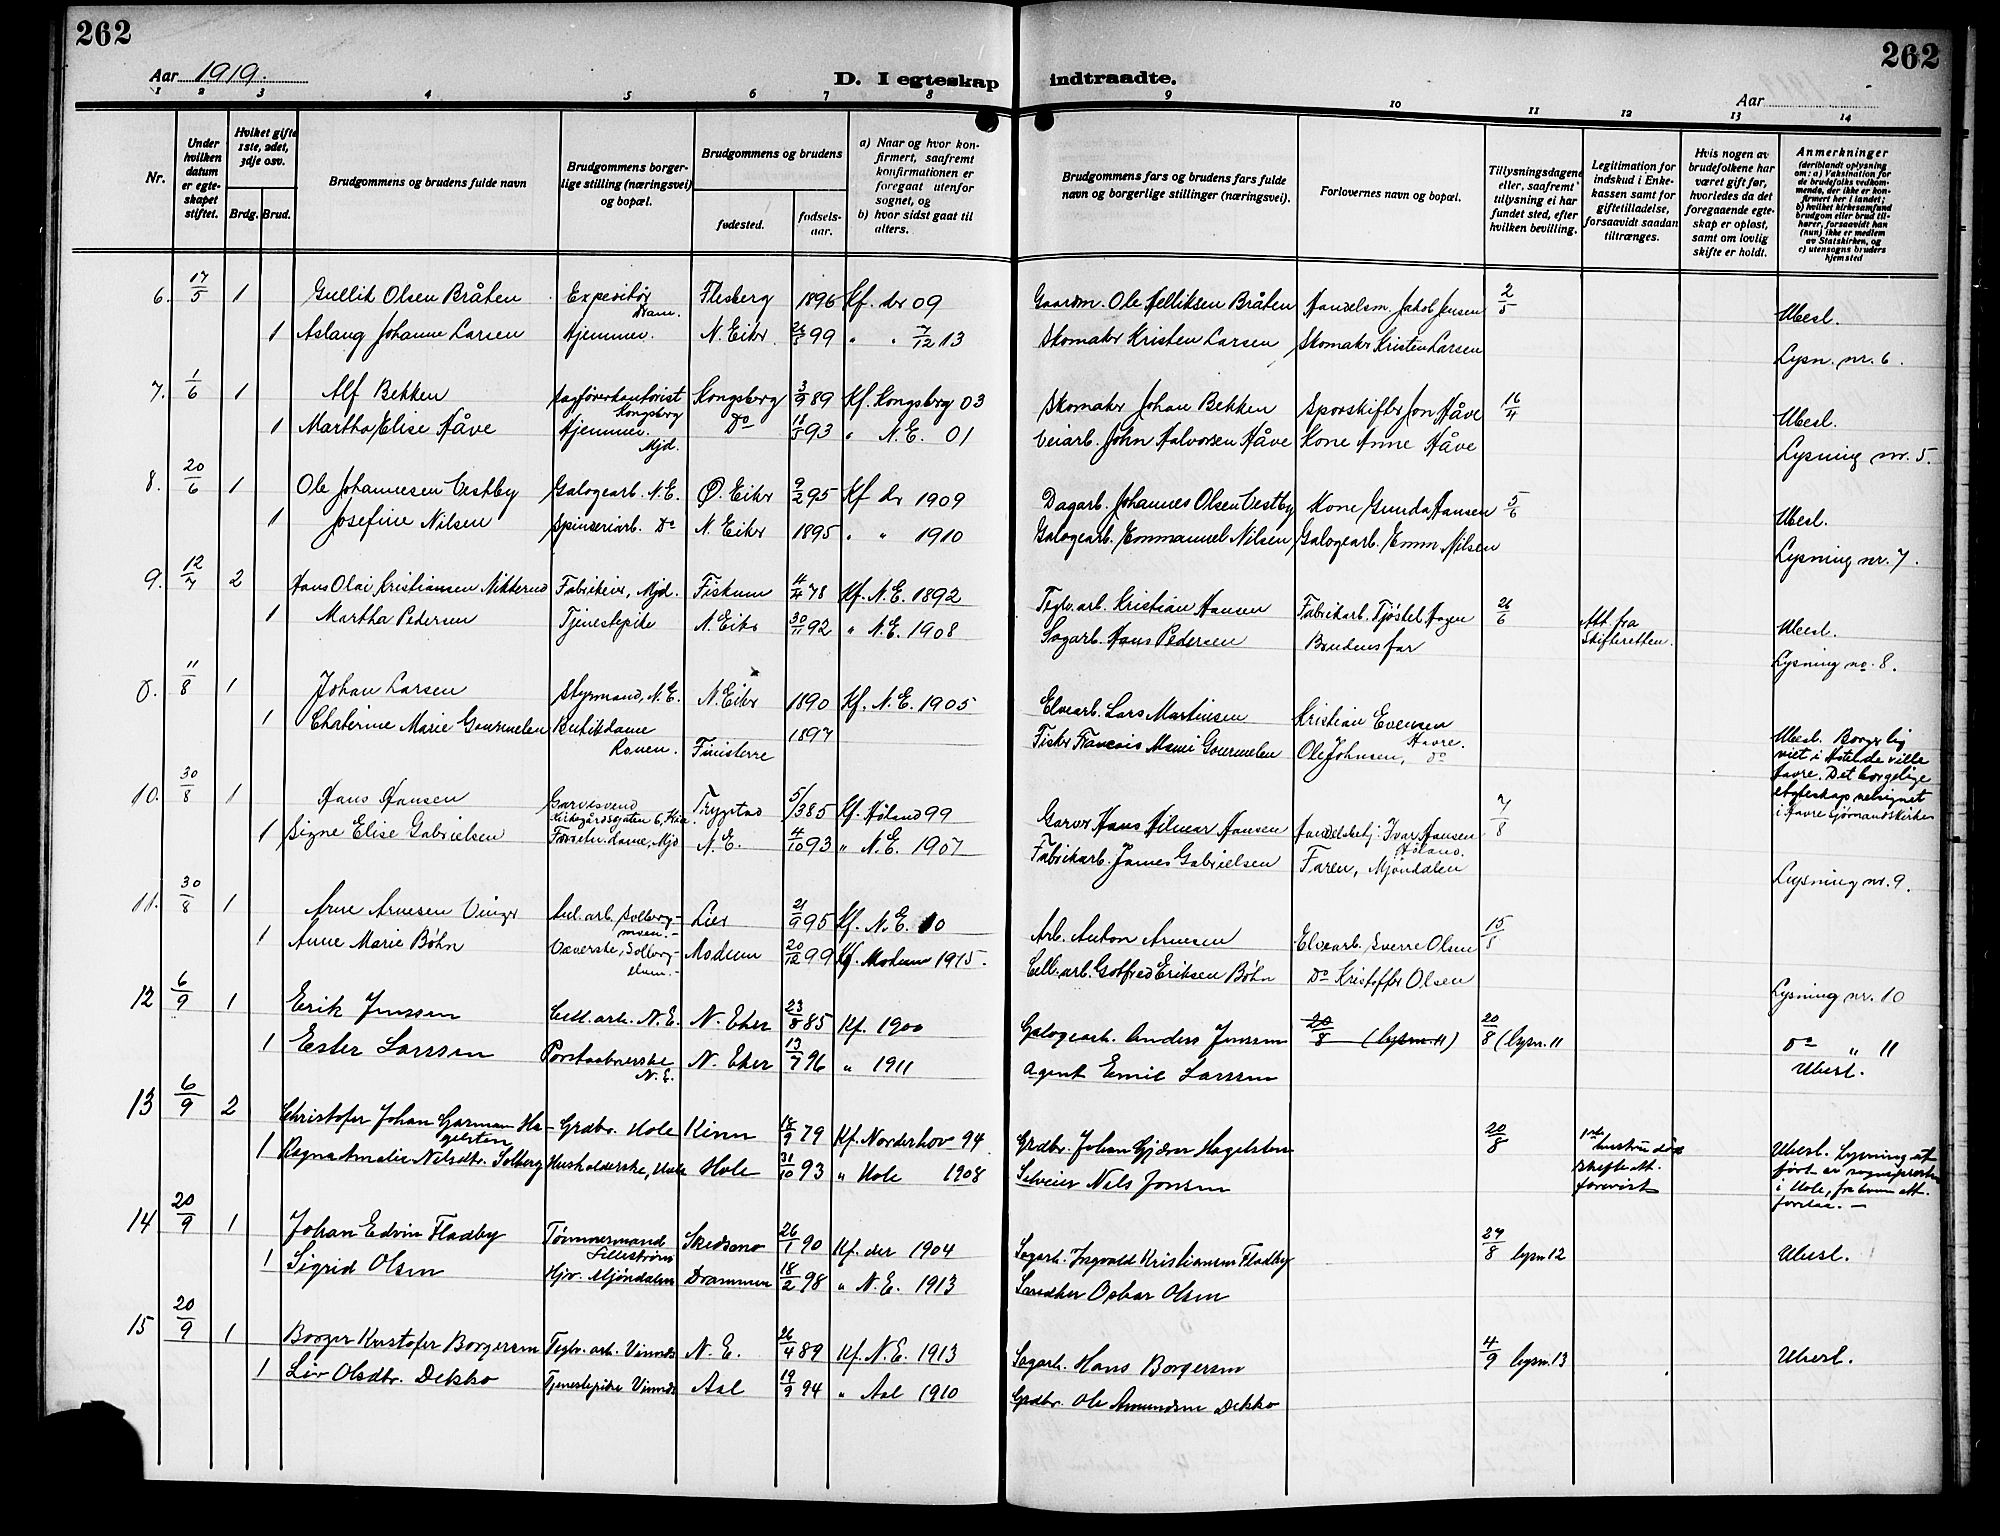 262
262
Aar 1919.
D. I egteskap indtraadte.
Aar
1 2 3 4 5 6 7 8 9 10 11 12 13 14
Nr.
Under hvilken datum er egteskapet stiftet.
Hvilket gifte 1ste, 2det, 3dje osv.
Brdg. Brud.
Brudgommens og brudens fulde navn
Brudgommens borgerlige stilling (næringsvei) og bopæl.
Brudgommens og brudens
fødested.
fødselsaar.
a) Naar og hvor konfirmert, saafremt konfirmationen er foregaat utenfor sognet, og
b) hvor sidst gaat til alters.
Brudgommens fars og brudens fars fulde navn og borgerlige stillinger (næringsvei).
Forlovernes navn og bopæl.
Tillysningsdagene eller, saafremt tillysning ei har fundet sted, efter hvilken bevilling.
Legitimation for indskud i Enkekassen samt for giftetilladelse, forsaavidt saadan tiltrænges.
Hvis nogen av brudefolkene har været gift før, hvorledes da det foregaaende egteskap er opløst, samt om lovlig skifte er holdt.
Anmerkninger
(deriblandt oplysning om: a) Vaksination for de brudefolks vedkommende, der ikke er konfirmert her i landet; b) hvilket kirkesamfund brudgom eller brud tilhører, forsaavidt han (hun) ikke er medlem av Statskirken, og c) utensogns bruders hjemsted
6. 17/5 1 Gullik Olsen Bråten Expeditør Dram. Flesberg 1896 Kf. der 09 Gaardm. Ole Helliksen Bråten Handelsm. Jakob Jensen 2/5 Ubesl.
1 Aslaug Johanne Larsen Hjemmev. N. Eiker 99 " " 7/12 13 Skomaker Kristen Larsen Skomaker Kristen Larsen Lysn. nr. 6.
7. 1/6 1 Alf Bekken Sagførerkontorist Kongsberg Kongsberg 3/9 89 Kf. Kongsberg 03 Skomaker Johan Bekken Sporskifter Jon Håve 16/ Ubesl.
1 Martha Elise Håve Hjemmev. Mjd. Do 93 " N.E. 01 Veiarb. John Halvorsen Håve Kone Anne Håve Lysning nr. 5.
8. 20/6 1 Ole Johannesen Vestby Galogearb. N.E. Ø. Eiker 9/2 95 Kf der 1909 Dagarb. Johannes Olsen Vestby Kone Gunda Hansen 5/6 Ubesl.
1 Josefine Nilsen Spinneriarb. Do N. Eiker 1895 " " 1910 Galogearb. Emmanuel Nilsen Galogearb. Emm. Nilsen Lysning nr. 7.
9. 12/7 2 Hans Olai Kristiansen Nikkerud Fabrikeier, Mjd. Fiskum 78 Kf. N.E. 1892 Teglv.arb. Kristian Hansen Fabrikarb. Tjøstel Hagen 26/6 Att. fra Skifteretten. Ubesl.
1 Martha Pedersen Tjenestepike N. Eiker 30/11 92 " N.E. 1908 Sagarb. Hans Pedersen Brudens far Lysning no. 8.
11/8 1 Johan Larsen Styrmand, N.E. N. Eiker 1890 Kf. N.E. 1905 Elvearb. Lars Martinsen Kristian Evensen Havre.
1 Chaterine Marie Gourmelen Butikdame Rouen. Finisterre 1897 Fisker Francois Mami Gourmelen Ole Johnsen, do
Ubesl. Borgerlig viet i Hotel de ville Havre. Det borgelige egteskap velsignet i Havre Sjømandskirke
10. 30/8 1 Hans Hansen Garvesvend Kirkegårdsgaten 6, Kria. Trygstad 5/3 85 Kf. Høland 99 Garver Hans Hilmar Hansen Handelsbetj. Ivar Hansen Høland. 7/8
1 Signe Elise Gabrielsen Forretn. dame, Mjd N.E. 4/10 93 " N.E. 1907 Fabrikarb. James Gabrielsen Faren, Mjøndalen Lysning nr. 9.
11. 30/8 1 Arne Arnesen Vinger Anl. arb. Solbergmoen. Lier 21/9 95 Kf. N.E. 10 Arb. Anton Arnesen Elvearb. Sverre Olsen 15/8
1 Anne Marie Bøhn Væverske, Solberg- Modum 20/12 99 Kf. Modum 1915. Cell. arb. Gotfred Eriksen Bøhn Do Kristoffer Olsen Lysning nr. 10
12 6/9 1 Erik Jenssen Cell. arb. N.E. N. Eker 23/8 85 Kf. 1900 Galogearb. Anders Jenssen 20/8 (lysn. 11) 20/8 (lysn. 11 do " 11
1 Ester Larssen N.E. N. Eker 13/7 96 " 1911 Agent Emil Larssen Ubesl.
13 6/9 2 Christofer Johan Garman Hagelsten Grdbr. Hole Kinn 18/9 79 Kf. Norderhov 94 Grdbr. Johan Gjører Hagelsten 20/8 1ste hustru død skifteatt. forevist Ubesl. Lysning utført av sogneprest i Hole, fra hvem att. forelaa. —
1 Ragna Amalie Nilsdtr. Solberg Husholderske, Hole Hole 31/10 93 " Hole 1908 Selveier Nils Jonsen
14 20/9 1 Johan Edvin Fladby Tømmermand Lillestrøm Skedsmo 26/1 90 Kf. der 1904 Sagarb. Ingvald Kristiansen Fladby 27/8 lysn. 12 Ubesl.
1 Sigrid Olsen Hjv. Mjøndalen Drammen 18/2 98 " N.E. 1913 Snedker Oskar Olsen
15 20/9 1 Borger Kristofer Borgersen Teglv. arb. Vinnes N.E. 26/4 89 Kf. N.E. 1913 Sagarb. Hans Borgersen 4/9 lysn. 13 Ubesl.
1 Liv Olsdtr. Dekko Tjenestepike Vinnes Aal 19/9 94 " Aal 1910 Grdbr. Ole Amundsen Dekko